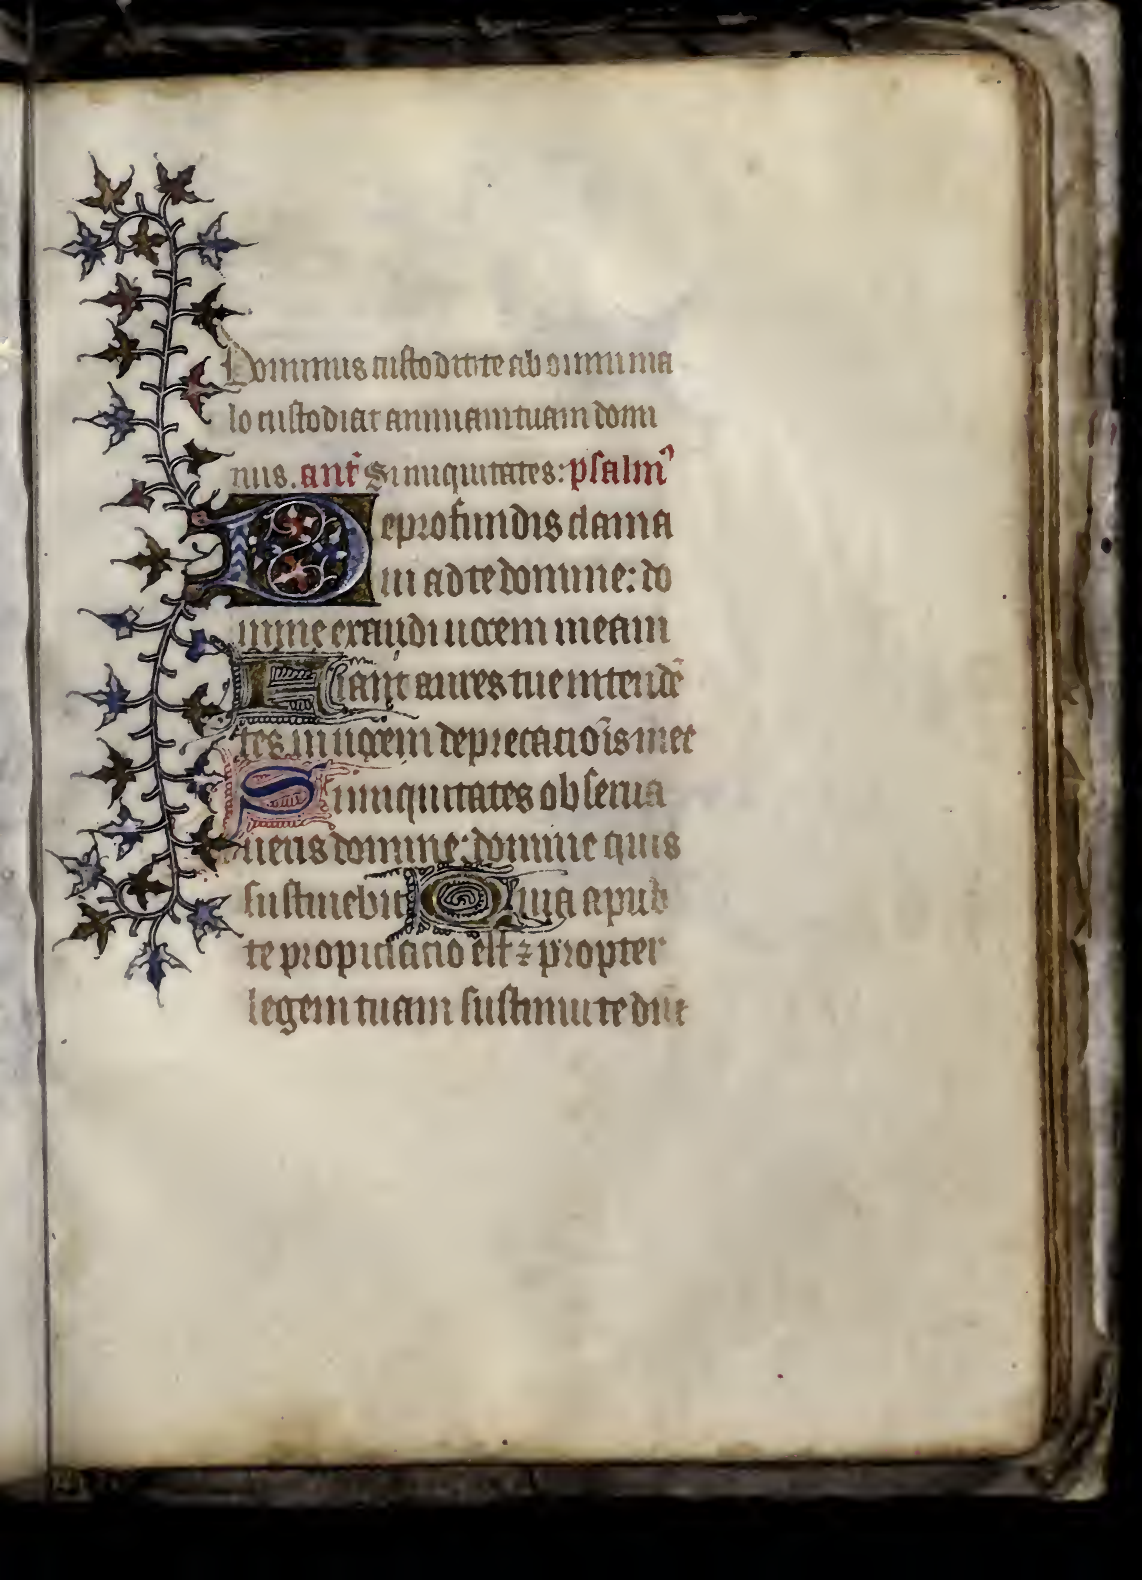 Dominus custodit te ab omni ma
lo custodiat animam tuam domi
nus. ant̃ Si iniquitates: psalmꝰ
De profundis clama
ui ad te domine: do
mine exaudi uocem meam
Fiant aures tue intendẽ
tes in uocem deprecatiõis mee
Si iniquitates obserua
ueris domine: domine quis
sustinebit Quia apud
te propiciacio est ⁊ propter
legem tuam sustinui te dñe